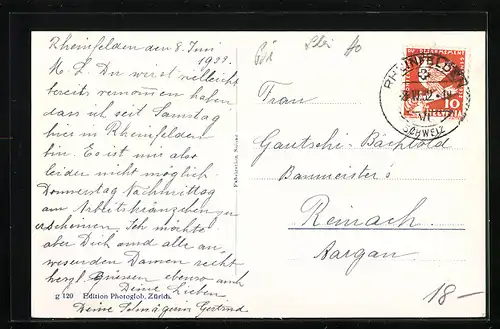 Rheinfelden den 8. Juni
1932.
M. L. Du wirst vielleicht
bereits vernommen haben
dass ich seit Samstag
hier in Rheinfelden
bin. Es ist mir aber
leider nicht möglich
Donnerstag Nachmittag
am Arbeitskränzchen zu
erscheinen. Ich möchte
aber Dich und alle an-
wesenden Damen recht
herzl. grüssen ebenso auch
Deine Lieben
Deine Schwägerin Gertrud
g 120 Edition Photoglob, Zürich.
Fabrication Suisse
Frau
Gautschi-Bächtold
Baumeister's
Reinach
Aargau
RHEINFELDEN
SCHWEIZ
10
HELVETIA
18-